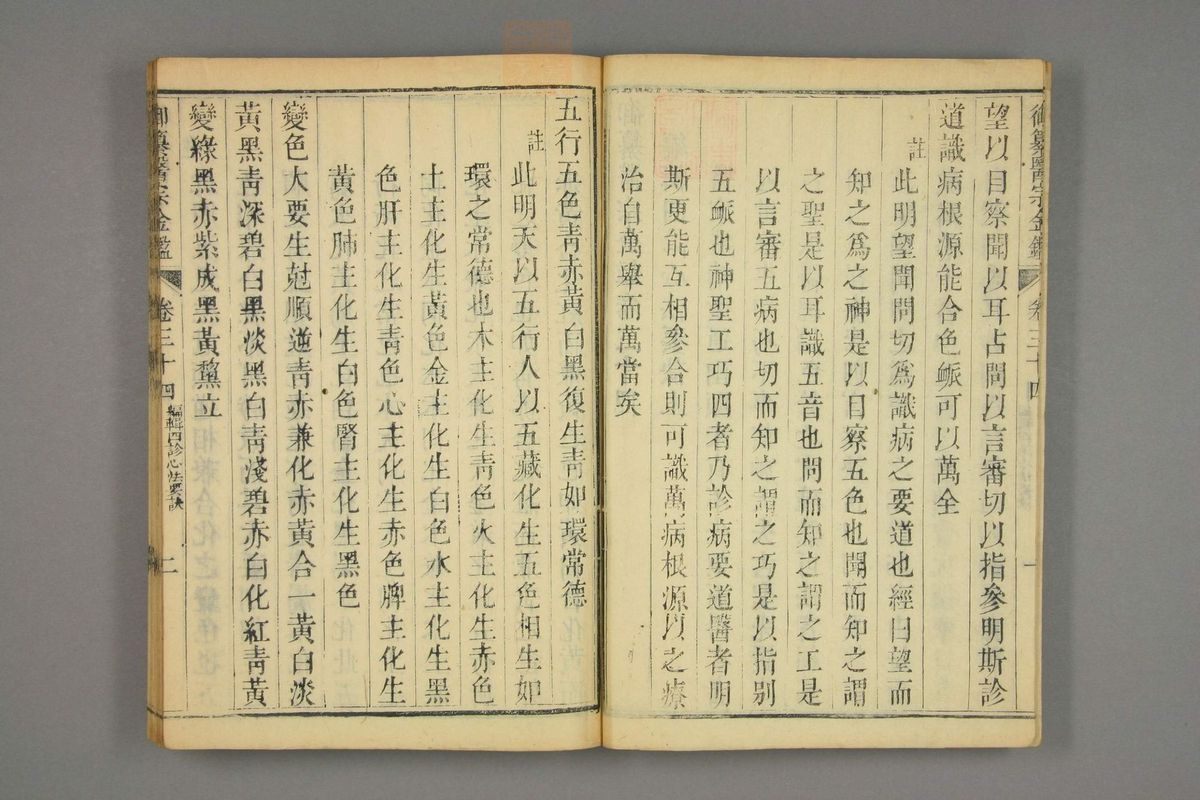 御纂醫宗金鑑 卷三十四 一
望以目察聞以耳占問以言審切以指參明斯診
道識病根源能合色脈可以萬全
註
此明望聞問切爲識病之要道也經曰望而
知之爲之神是以目察五色也聞而知之謂
之聖是以耳識五音也問而知之謂之工是
以言審五病也切而知之謂之巧是以指別
五脈也神聖工巧四者乃診病要道醫者明
斯更能互相參合則可識萬病根源以之療
治自萬舉而萬當矣
五行五色青赤黃白黑復生青如環常德
註
此明天以五行人以五藏化生五色相生如
環之常德也木主化生青色火主化生赤色
土主化生黃色金主化生白色水主化生黑
色肝主化生青色心主化生赤色脾主化生
黃色肺主化生白色腎主化生黑色
變色大要生尅順逆青赤兼化赤黃合一黃白淡
黃黑青深碧白黑淡黑白青淺碧赤白化紅青黃
變綠黑赤紫成黑黃黧立
御纂醫宗金鑑 卷三十四 編輯四診心法要訣 二